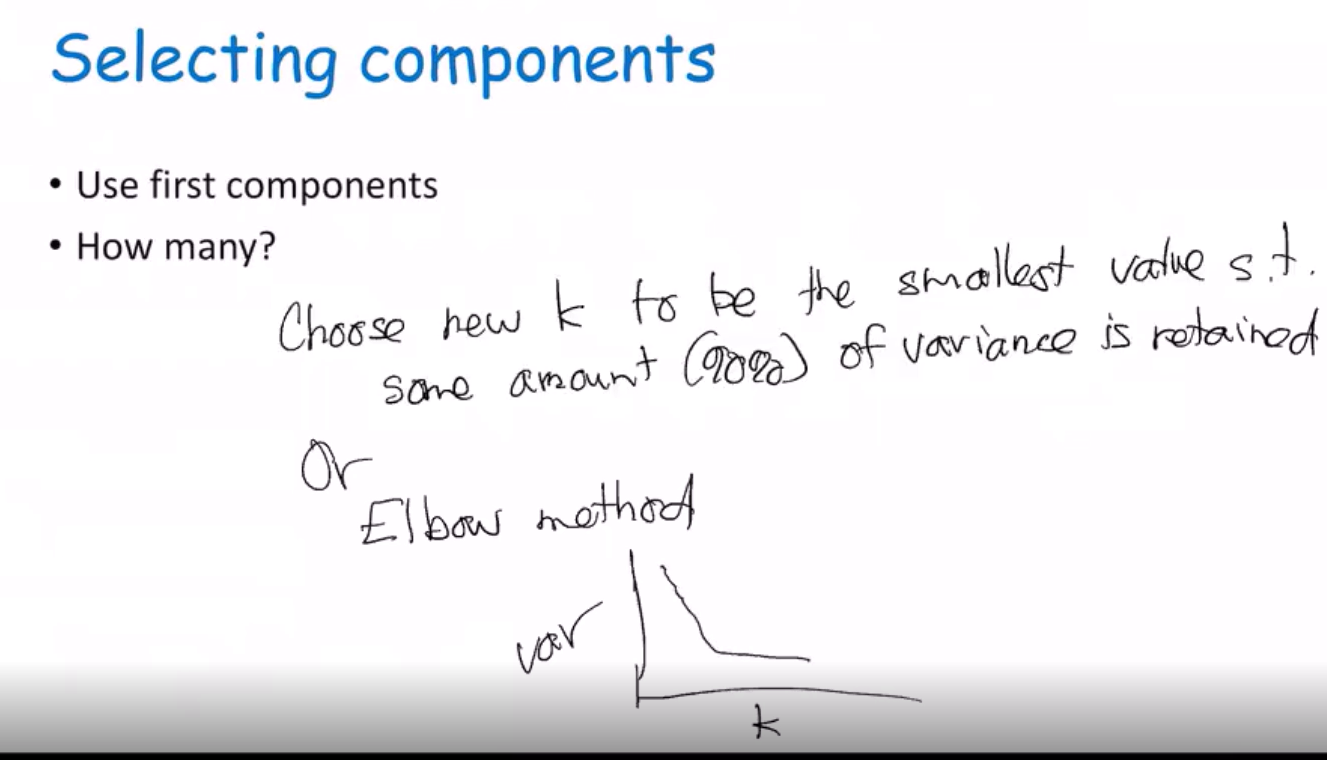 Selecting components
• Use first components
• How many?
Choose new k to be the smallest value s.t.
some amount (90%) of variance is retained
Or
Elbow method
var
k